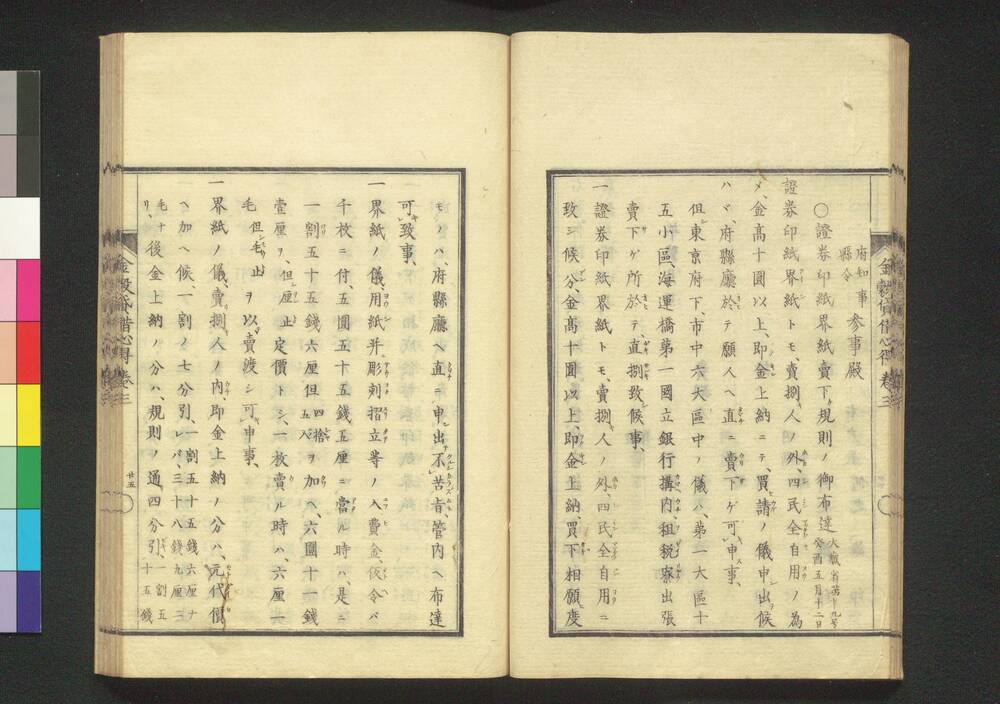 府知事
縣令
參事殿
○證券印紙界紙賣下規則ノ御布達 大藏省第十九号
癸酉五月十二日
證券印紙界紙トモ、賣捌人ノ外、四民全自用ノ為
メ、金高十圓以上、即金上納ニテ、買請ノ儀申出候
ハヾ、府縣廳於テ願人ヘ直ニ賣下ゲ可申事、
但東京府下、市中六大區中ノ儀ハ、第一大區十
五小區海運橋第一國立銀行搆内、租税寮出張
賣下ゲ所於テ直捌致候事、
一證券印紙界紙トモ、賣捌人ノ外、四民全自用ニ
致シ候分、金高十圓以上、即金上納、買下相願度
金穀貸借心得 巻三
モノハ、府縣廳ヘ直申出不苦旨、管内ヘ布達
可致事、
一界紙ノ儀、用紙并彫刻摺立等ノ入費金、仮令バ
千枚ニ付、五圓五十五錢五厘ニ當ル時ハ、是ニ
一割五十五錢六厘但四捨五入ヲ加ヘ、六圓十一錢
壹厘ヲ、但厘止定價トシ、一枚賣ル時ハ、六厘一
毛但毛止ヲ以賣渡シ可申事、
一界紙ノ儀、賣捌人ノ内即金上納ノ分ハ、元代價
ヘ加ヘ候、一割ノ七分引、一割五十五錢六厘ナレバ、三十八錢九厘二
毛ナリ、後金上納ノ分ハ、規則ノ通四分引、一割五十五錢
金穀貸借心得 巻三
廿五